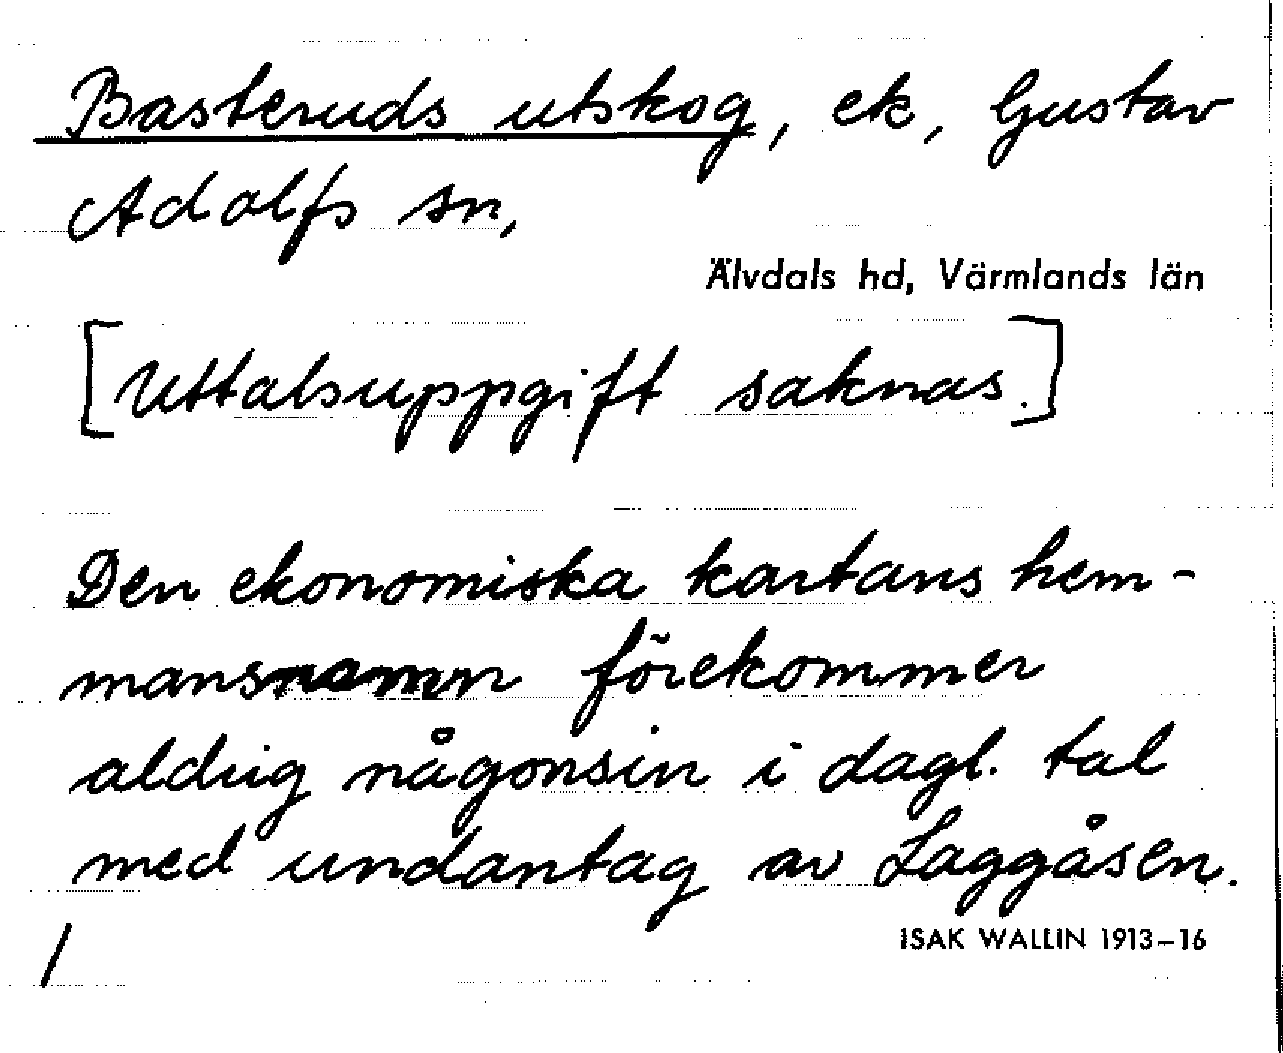 Basteruds utskog, ek, Gustav
Adolfs sn,
Älvdals hd, Värmlands län
[Uttalsuppgift saknas.]
Den ekonomiska kartans hem-
mansnamn förekommer
aldrig någonsin i dagl. tal
med undantag av Laggåsen.
ISAK WALLIN 1913–16